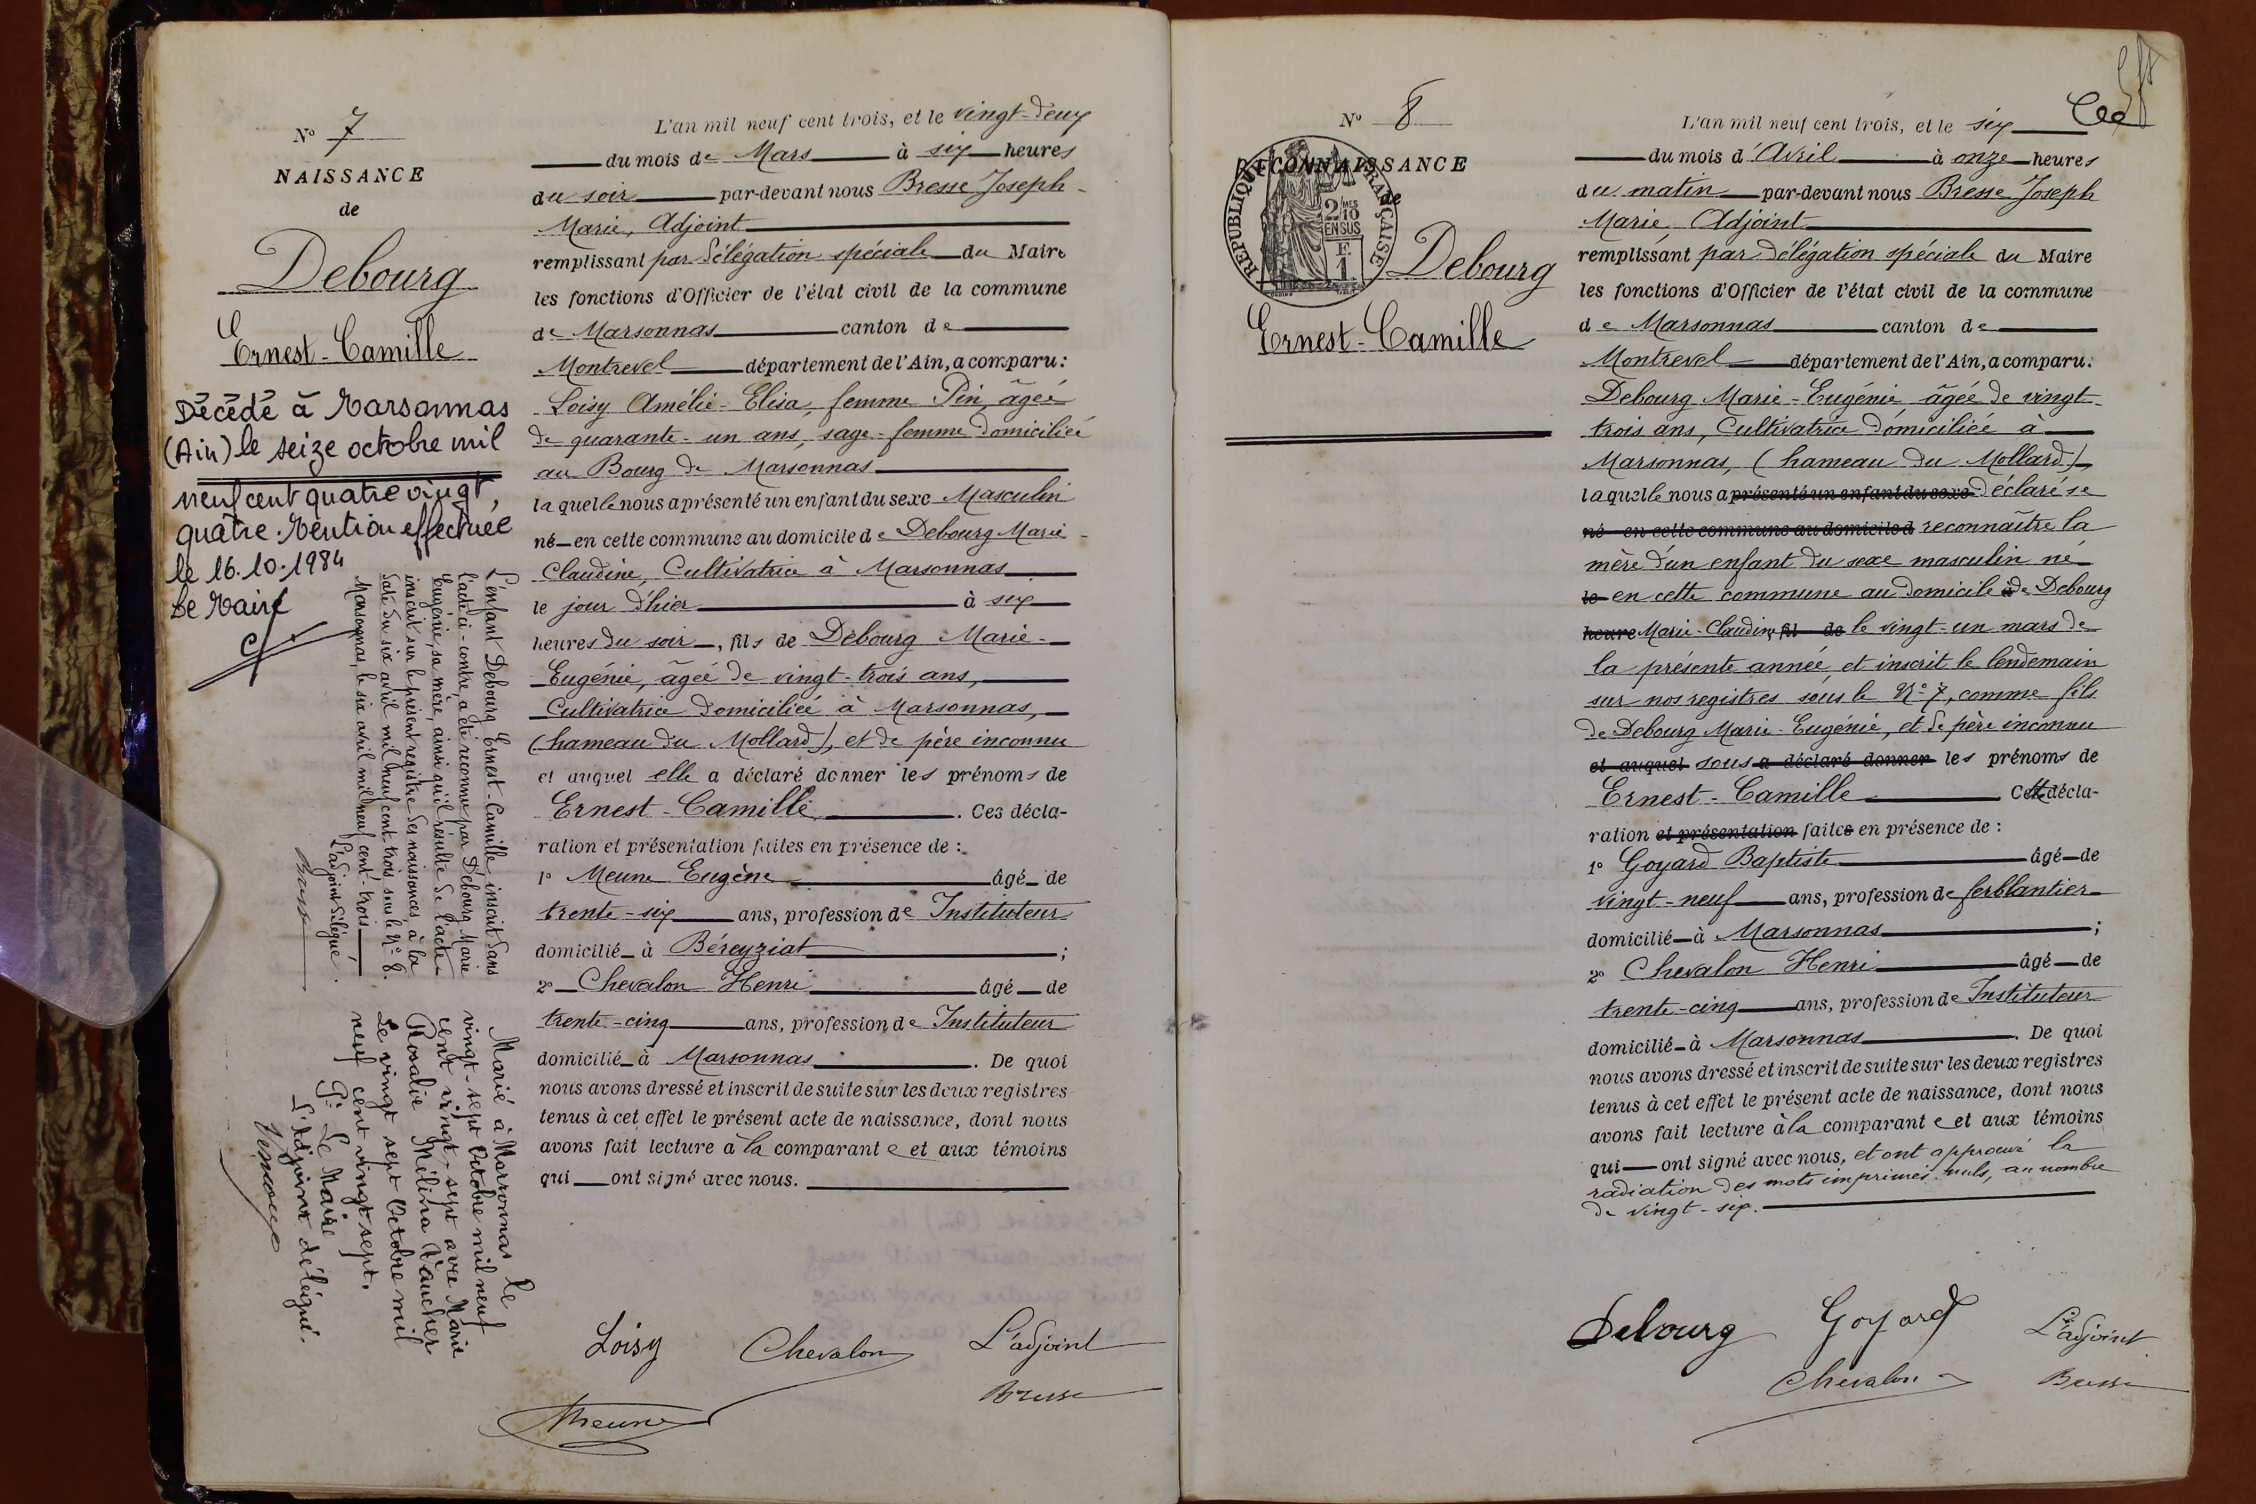 N° 7
NAISSANCE
de
Debourg
Ernest-Camille
Décédé à Marsonnas
(Ain) le seize octobre mil
neuf cent quatre vingt,
quatre. Mention effectuée
le 16.10.1984
Le Maire
L'enfant Debourg Ernest-Camille inscrit dans
l'acte ci-contre, a été reconnu par Debourg Marie
Eugénie, sa mère, ainsi qu'il résulte de l'acte
inscrit sur le présent registre des naissances, à la
date du six avril mil neuf cent trois, sous le N° 8.
Marsonnas, le six avril mil neuf cent-trois
L'adjoint délégué.
Bresse
Marié à Marsonnas le
vingt-sept Octobre mil neuf
cent vingt-sept avec Marie
Rosalie Mélina Vaucher
Le vingt sept Octobre mil
neuf cent vingt sept.
Pr Le Maire
L'Adjoint délégué.
L'an mil neuf cent trois, et le vingt-deux
du mois de Mars à six heures
du soir par-devant nous Bresse Joseph-
Marie, Adjoint
remplissant par délégation spéciale du Maire
les fonctions d'Officier de l'état civil de la commune
de Marsonnas canton de
Montrevel département de l'Ain, a comparu:
Loisy Amélie-Elisa, femme Pin, âgée
de quarante-un ans, sage-femme domiciliée
au Bourg de Marsonnas
laquelle nous a présenté un enfant du sexe Masculin
né en cette commune au domicile de Debourg Marie-
Claudine, Cultivatrice à Marsonnas
le jour d'hier à six
heures du soir, fils de Debourg Marie-
Eugénie, âgée de vingt-trois ans,
Cultivatrice domiciliée à Marsonnas,
(hameau du Mollard), et de père inconnu
et auquel elle a déclaré donner les prénoms de
Ernest-Camille. Ces décla-
ration et présentation faites en présence de :
1° Meune Eugène âgé de
trente-six ans, profession de Instituteur
domicilié à Béreyziat ;
2° Chevalon Henri âgé de
trente-cinq ans, profession de Instituteur
domicilié à Marsonnas. De quoi
nous avons dressé et inscrit de suite sur les deux registres
tenus à cet effet le présent acte de naissance, dont nous
avons fait lecture à la comparante et aux témoins
qui ont signé avec nous.
Loisy Chevalon L'adjoint
Bresse
Meune
N° 8
RECONNAISSANCE
de
REPUBLIQUE FRANÇAISE
2/10 MES
EN SUS
F.
1.
Debourg
Ernest-Camille
L'an mil neuf cent trois, et le six
du mois d'Avril à onze heures
du matin par-devant nous Bresse Joseph
Marie, Adjoint
remplissant par délégation spéciale du Maire
les fonctions d'Officier de l'état civil de la commune
de Marsonnas canton de
Montrevel département de l'Ain, a comparu:
Debourg Marie-Eugénie âgée de vingt-
trois ans, Cultivatrice domiciliée à
Marsonnas, (hameau du Mollard)
laquelle nous a présenté un enfant du sexe déclaré se
né en cette commune au domicile d reconnaître la
mère d'un enfant du sexe masculin né
le en cette commune au domicile à de Debourg
heure Marie-Claudine, fil de le vingt-un mars de
la présente année, et inscrit le lendemain
sur nos registres sous le N° 7, comme fils
de Debourg Marie-Eugénie, et de père inconnu
et auquel sous a déclaré donner les prénoms de
Ernest-Camille Cette décla-
ration et présentation faites en présence de :
1° Goyard Baptiste âgé de
vingt-neuf ans, profession de ferblantier
domicilié à Marsonnas ;
2° Chevalon Henri âgé de
trente-cinq ans, profession de Instituteur
domicilié à Marsonnas. De quoi
nous avons dressé et inscrit de suite sur les deux registres
tenus à cet effet le présent acte de naissance, dont nous
avons fait lecture à la comparante et aux témoins
qui ont signé avec nous, et ont approuvé la
radiation des mots imprimés nuls, au nombre
de vingt-six.
Debourg Goyard L'adjoint
Chevalon Bresse